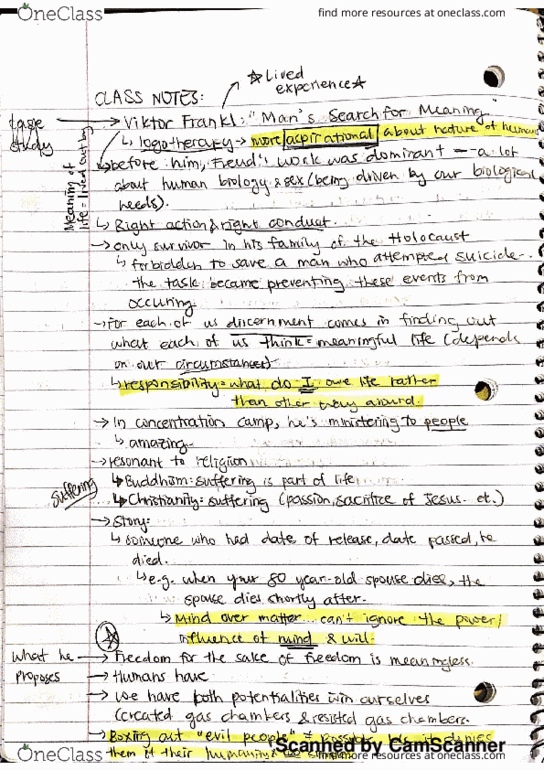 OneClass
find more resources at oneclass.com
☆Lived
experience☆
CLASS NOTES:
case
study
→ Viktor Frankl: "Man's Search for Meaning"
↳ logotherapy → more aspirational about nature of humans
Meaning of
life = lived out by
↳ before him, Freud's work was dominant — a lot
about human biology & sex (being driven by our biological
needs).
↳ Right action & right conduct.
→ only survivor in his family of the Holocaust
↳ forbidden to save a man who attempted suicide-
the task became preventing these events from
occuring
→ for each of us discernment comes in finding out
what each of us think = meaningful life (depends
on our circumstances)
↳ responsibility = what do I owe life rather
than other way around.
→ In concentration camp, he's ministering to people
↳ amazing
→ resonant to religion
suffering
↳ Buddhism: suffering is part of life
↳ Christianity: suffering (passion, sacrifice of Jesus. et.)
→ Story:
↳ someone who had date of release, date passed, he
died.
↳ e.g. when your 80 year-old spouse dies, the
spouse dies shortly after.
↳ Mind over matter... can't ignore the power/
influence of mind & will.
what he
proposes
→ Freedom for the sake of freedom is meaningless.
→ Humans have
→ we have both potentialities w/in ourselves
(created gas chambers & resisted gas chambers.
→ Boxing out "evil people" = it denies
them of their humanity &
Scanned by CamScanner
OneClass
find more resources at oneclass.com